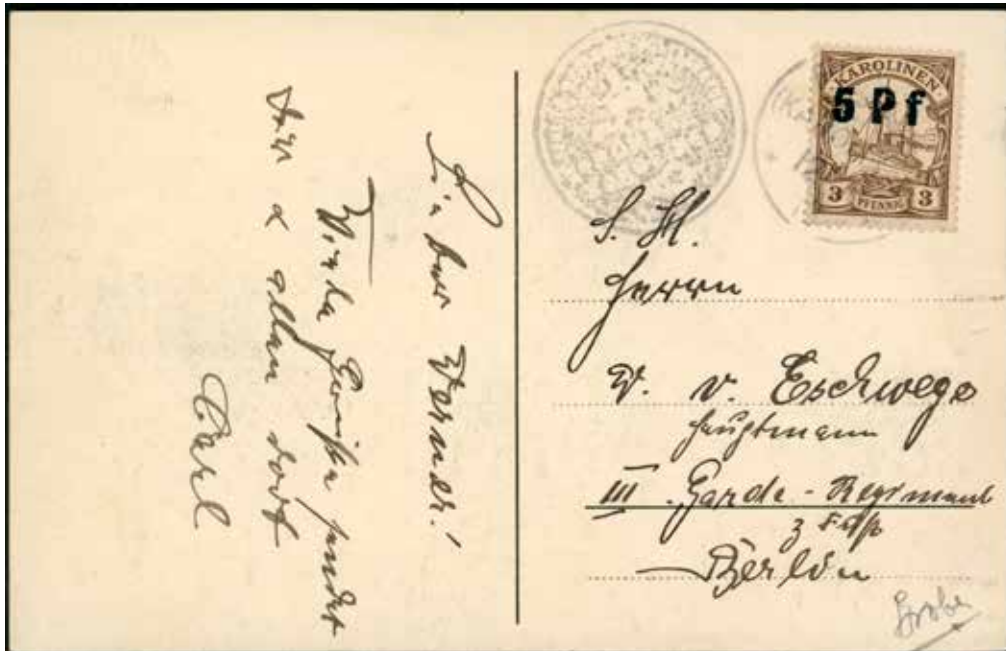 Lieber Werner!
Viele Grüße sendet
Dir & allen dort
Carl
KAROLINEN
5 Pf
3 PFENNIG 3
S. H.
Herrn
W. v. Eschwege
Hauptmann
III. Garde-Regiment
z Fuß
Berlin